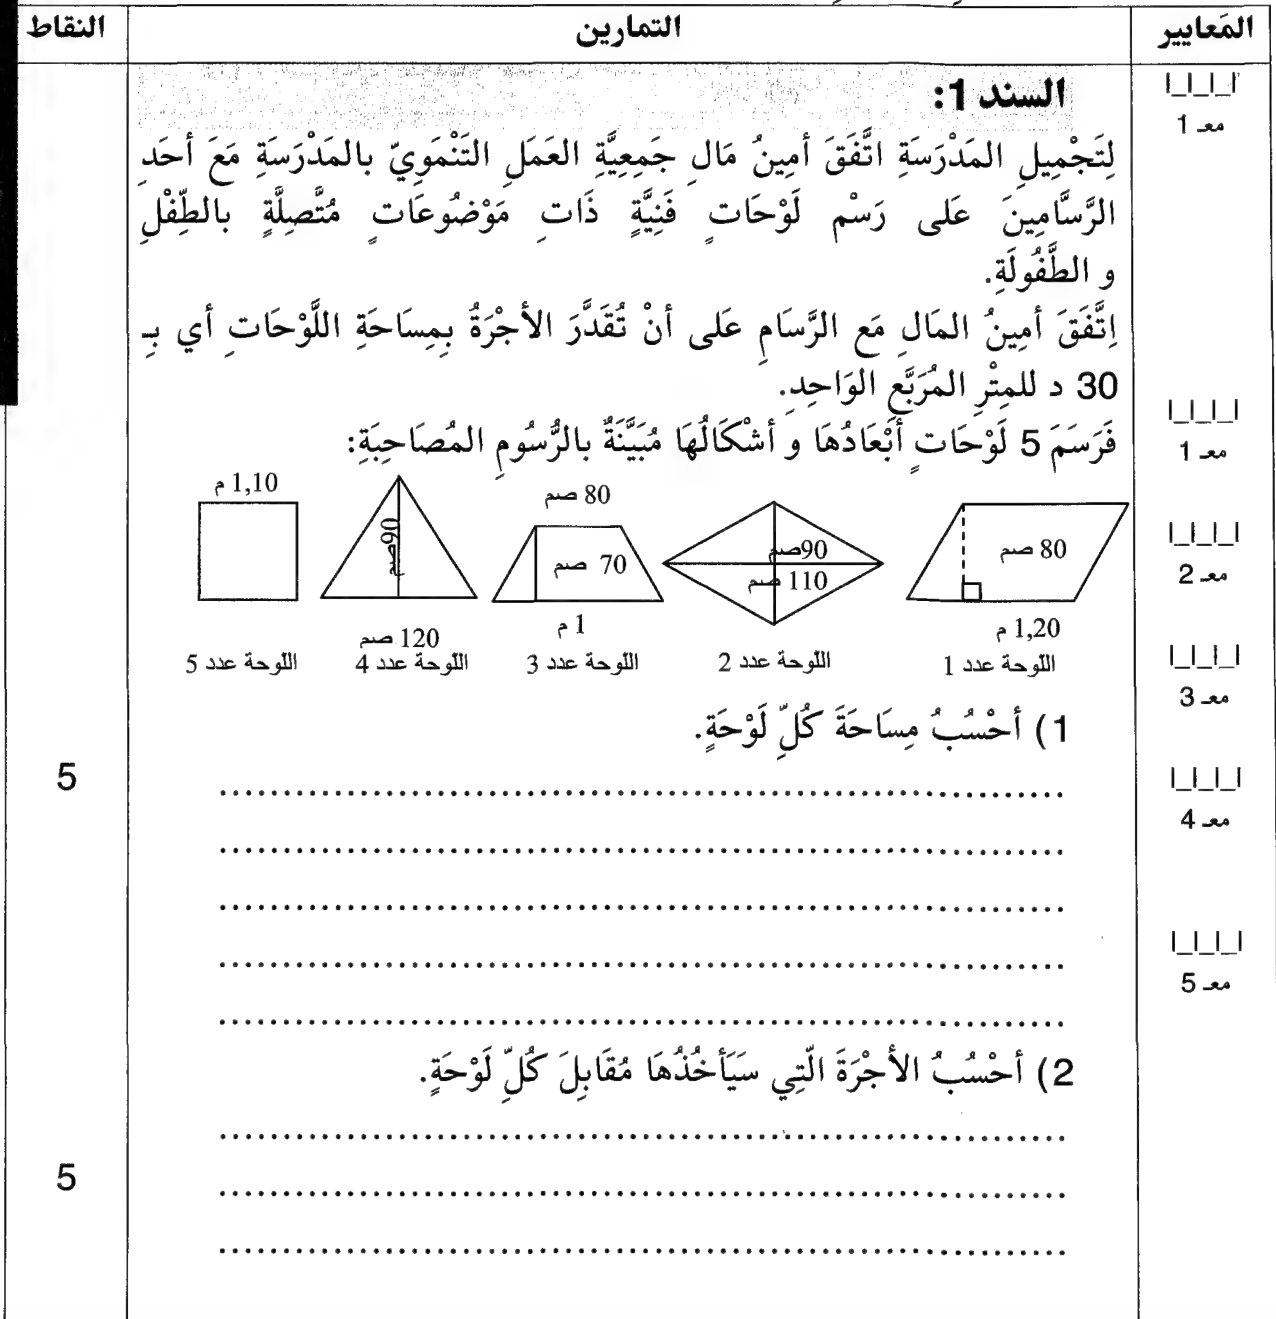 المَعايير التمارين النقاط
السند 1:
لِتَجْمِيلِ المَدْرَسَةِ اتَّفَقَ أمِينُ مَالِ جَمِعِيَّةِ العَمَلِ التَنْمَوِيّ بالمَدْرَسَةِ مَعَ أحَدِ
الرَّسَّامِينَ عَلى رَسْمِ لَوْحَاتٍ فَنِيَّةٍ ذَاتِ مَوْضُوعَاتٍ مُتَّصِلَّةٍ بالطِّفْلِ
و الطَّفُولَةِ.
اِتَّفَقَ أمِينُ المَالِ مَع الرَّسَامِ عَلى أنْ تُقَدَّرَ الأجْرَةُ بِمِسَاحَةِ اللَّوْحَاتِ أي بِـ
30 د للمِتْرِ المُرَبَّعِ الوَاحِدِ.
فَرَسَمَ 5 لَوْحَاتٍ أبْعَادُهَا و أشْكَالُهَا مُبَيَّنَةٌ بالرُّسُومِ المُصَاحِبَةِ:
80 صم
1,20 م
اللّوحة عدد 1
90صم
110 صم
اللّوحة عدد 2
80 صم
70 صم
1 م
اللّوحة عدد 3
90صم
120 صم
اللّوحة عدد 4
1,10 م
اللّوحة عدد 5
1) أحْسُبُ مِسَاحَةَ كُلِّ لَوْحَةٍ.
5
2) أحْسُبُ الأجْرَةَ الّتِي سَيَأخُذُهَا مُقَابِلَ كُلِّ لَوْحَةٍ.
5
معـ 1
معـ 1
معـ 2
معـ 3
معـ 4
معـ 5